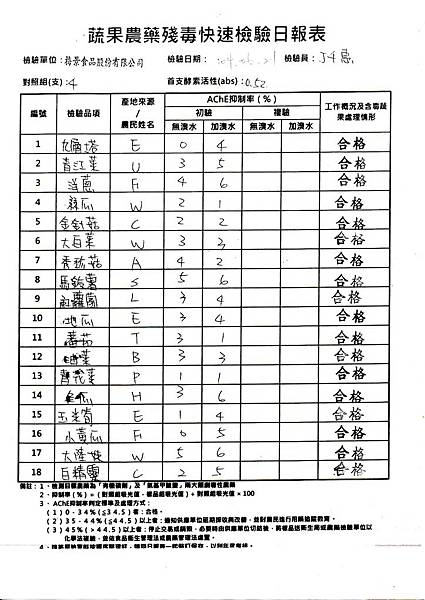 蔬果農藥殘毒快速檢驗日報表
檢驗單位：務景食品股份有限公司 檢驗日期： 檢驗員：
對照組(支)：4 首支酵素活性(abs)：0.52
編號 檢驗品項 產地來源/農民姓名 AChE抑制率(%) 工作概況及含毒蔬果處理情形
初驗 複驗
無溴水 加溴水 無溴水 加溴水
1 九層塔 E 0 4 合格
2 青江菜 U 3 5 合格
3 洋蔥 Fi 4 6 合格
4 絲瓜 W 2 1 合格
5 金針菇 C 2 2 合格
6 大白菜 W 3 3 合格
7 秀珍菇 A 4 2 合格
8 馬鈴薯 S 5 6 合格
9 紅蘿蔔 L 3 4 合格
10 地瓜 E 3 4 合格
11 蕃茄 T 3 1 合格
12 B 3 3 合格
13 青花菜 P 1 1 合格
14 H 3 6 合格
15 玉米筍 E 1 4 合格
16 小黃瓜 Fi 0 5 合格
17 大陸妹 W 5 6 合格
18 白精靈 C 2 5 合格
備註：1、檢測目標農藥為「有機磷劑」及「氨基甲酸鹽」兩大類劇毒性農藥
2、抑制率(%)＝(對照組吸光值－樣品組吸光值)÷對照組吸光值×100
3、AChE抑制率判定標準及處理方式：
(1)0-34%(≦34.5)者：合格。
(2)35-44%(≦44.5)以上者：通知供應單位延期採收與改善，並對農民進行用藥追蹤教育。
(3)45%(＞44.5)以上者：停止交易或銷毀，必要時由供應單位切結後，將樣品送衛生局或農藥檢驗單位以
化學法複驗，並依食品衛生管理法或農藥管理法處置。